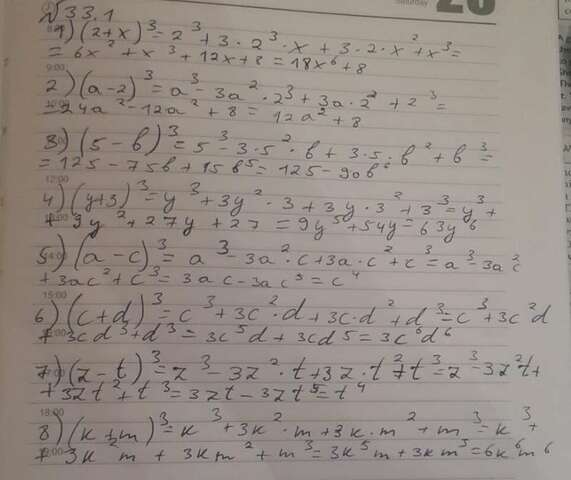 Saturday 20
№33.1
1) (2+x)³=2³+3·2³·x+3·2·x²+x³=
=6x²+x³+12x+8=18x⁶+8
9:00
2) (a-2)³=a³-3a²·2³+3a·2²+2³=
-24a²-12a²+8=12a²+8
3) (5-b)³=5³-3·5²·b+3·5·b²+b³=
=125-75b+15b⁵=125-90b⁶
12:00
4) (y+3)³=y³+3y²·3+3y·3²+3³=y³+
+9y²+27y+27=9y⁵+54y=63y⁶
5) (a-c)³=a³-3a²·c+3a·c²+c³=a³-3a²c
14:00
+3ac²+c³=3ac-3ac⁵=c⁴
15:00
6) (c+d)³=c³+3c²·d+3c·d²+d³=c³+3c²d
+3cd³+d³=3c⁵d+3cd⁵=3c⁶d⁶
7) (z-t)³=z³-3z²·t+3z·t²+t³=z³-3z²t+
+3zt²+t³=3zt-3zt⁵=t⁴
18:00
8) (k+m)³=k³+3k²·m+3k·m²+m³=k³+
+3k²m+3km²+m³=3k⁵m+3km⁵=6k⁶m⁶